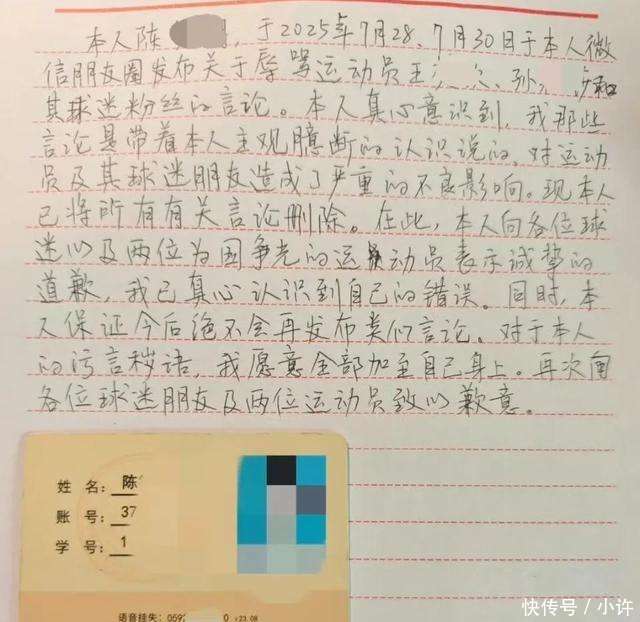 本人陈
，于2025年7月28、7月30日于本人微
信朋友圈发布关于辱骂运动员王
孙
和
其球迷粉丝的言论。本人真心意识到，我那些
言论是带着本人主观臆断的认识说的，对运动
员及其球迷朋友造成了严重的不良影响。现本人
已将所有有关言论删除。在此，本人向各位球
迷以及两位为国争光的运动员表示诚挚的
道歉，我已真心认识到自己的错误。同时，本
人保证今后绝不会再发布类似言论。对于本人
的污言秽语，我愿意全部加至自己身上。再次向
各位球迷朋友及两位运动员致以歉意。
姓 名：陈
账 号：37
学 号：1
语音挂失：059
0
23.08
快传号／小许